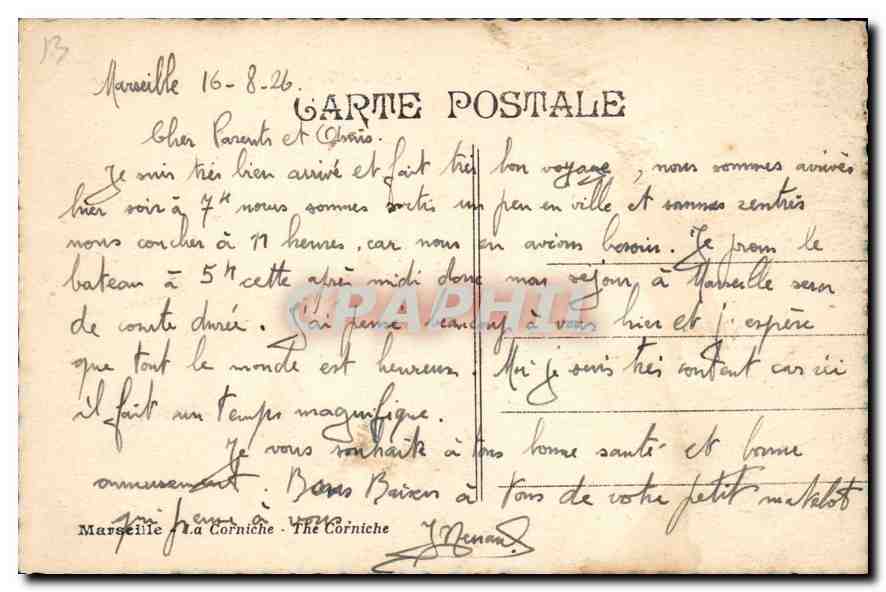 13
Marseille 16-8-26.
CARTE POSTALE
Cher Parents et
Je suis très bien arrivé et fait très bon voyage, nous sommes arrivés
hier soir à 7h nous sommes sortis un peu en ville et sommes rentrés
nous coucher à 11 heures, car nous en avions besoin. Je prom le
bateau à 5h cette après midi donc mon séjour à Marseille sera
de courte durée. J'ai pensé beaucoup à vous hier et j'espère
PAPHIL
que tout le monde est heureux. Moi je suis très content car ici
il fait un temps magnifique.
Je vous souhaite à tous bonne santé et bonne
amusement. Bons Baisers à tous de votre petit matelot
qui pense à vous.
Marseille - La Corniche - The Corniche